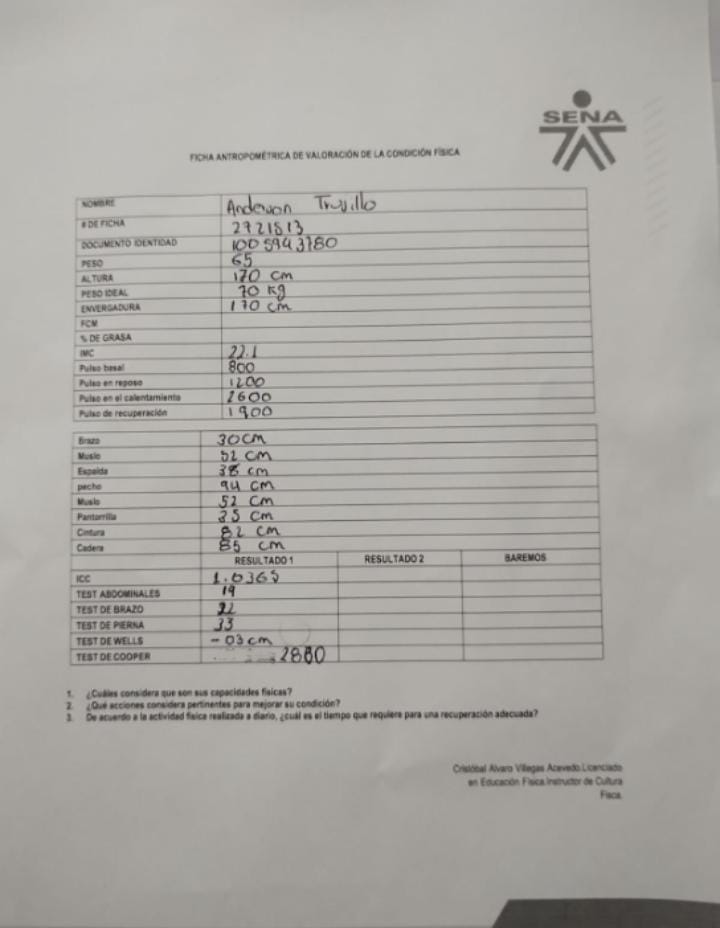 SENA
FICHA ANTROPOMÉTRICA DE VALORACIÓN DE LA CONDICIÓN FÍSICA
NOMBRE Anderson Trujillo
# DE FICHA 2721513
DOCUMENTO IDENTIDAD 1005943780
PESO 65
ALTURA 170 cm
PESO IDEAL 70 kg
ENVERGADURA 170 cm
FCM
% DE GRASA
IMC 22.1
Pulso basal 800
Pulso en reposo 1200
Pulso en el calentamiento 2600
Pulso de recuperación 1900
Brazo 30 cm
Muslo 52 cm
Espalda 38 cm
pecho 94 cm
Muslo 52 cm
Pantorrilla 35 cm
Cintura 82 cm
Cadera 85 cm
RESULTADO 1 RESULTADO 2 BAREMOS
ICC 1.0365
TEST ABDOMINALES 19
TEST DE BRAZO 22
TEST DE PIERNA 33
TEST DE WELLS - 03 cm
TEST DE COOPER 2880
1. ¿Cuáles considera que son sus capacidades físicas?
2. ¿Qué acciones considera pertinentes para mejorar su condición?
3. De acuerdo a la actividad física realizada a diario, ¿cuál es el tiempo que requiere para una recuperación adecuada?
Cristóbal Alvaro Villegas Acevedo.Licenciado
en Educación Física.Instructor de Cultura
Física.